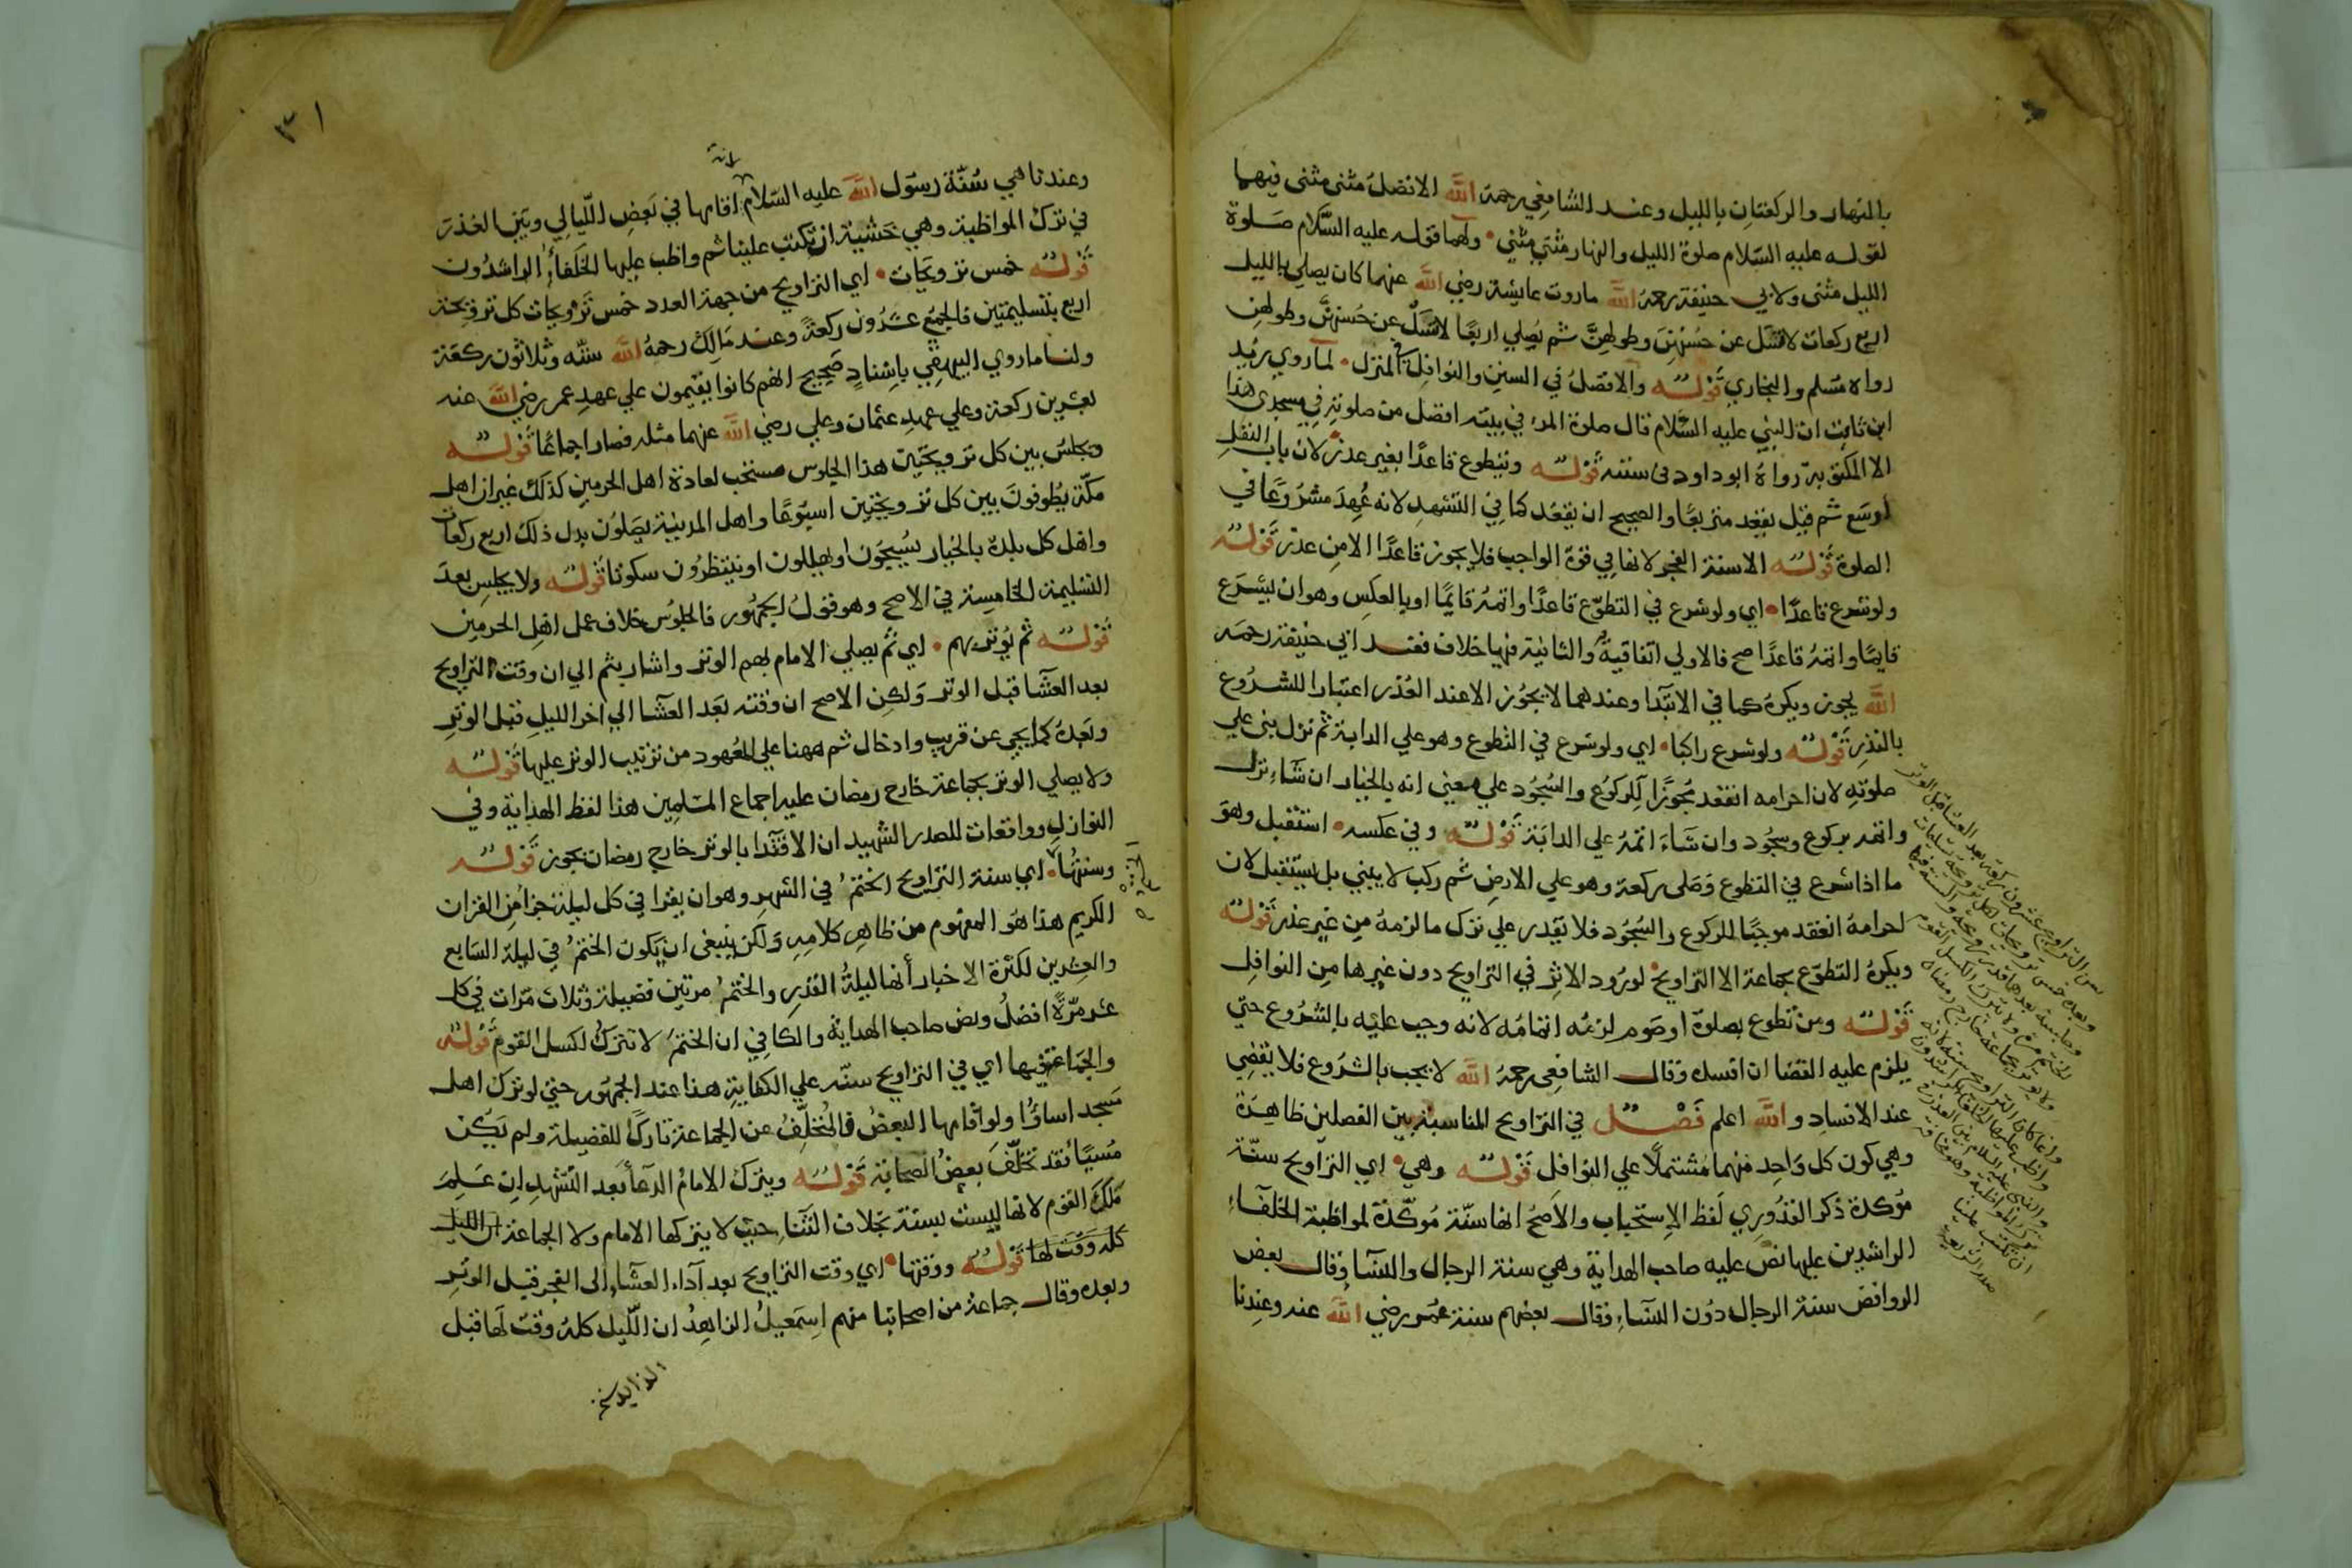 بالنهار والركعتان بالليل وعند الشافعي رحمه الله الافضل مثنى مثنى فيهما
لقوله عليه السلام صلوة الليل والنهار مثنى مثنى ولهما قوله عليه السلام صلوة
الليل مثنى ولابي حنيفة رحمه الله ماروت عايشة رضي الله عنهما كان يصلي بالليل
اربع ركعات لا تسل عن حسنهن وطولهن ثم يصلي اربعا لا تسل عن حسنهن وطولهن
رواه مسلم والبخاري قوله والافضل في السنن والنوافل المنزل لما روي زيد
ابن ثابت ان النبي عليه السلام قال صلوة المرء في بيته افضل من صلوته في مسجدي هذا
الا المكتوبة رواه ابو داود في سننه قوله ويتطوع قاعدا بغير عذر لان باب النفل
اوسع ثم قيل يقعد متربعا والصحيح ان يقعد كما في التشهد لانه عهد مشروعا في
الصلوة قوله الا سنة الفجر لانها في قوة الواجب فلا يجوز قاعدا الا من عذر قوله
ولو شرع قاعدا اي ولو شرع في التطوع قاعدا واتمه قايما او بالعكس وهو ان يشرع
قايما واتمه قاعدا صح فالاولي اتفاقية والثانية فيها خلاف فعند ابي حنيفة رحمه
الله يجوز ويكره كما في الابتدا وعندهما لا يجوز الا عند العذر اعتبارا للشروع
بالنذر قوله ولو شرع راكبا اي ولو شرع في التطوع وهو علي الدابة ثم نزل بنى علي
صلوته لان احرامه انعقد مجوزا للركوع والسجود علي معني انه بالخيار ان شاء نزل
واتمه بركوع وسجود وان شاء اتمه علي الدابة قوله وفي عكسه استقبل وهو
ما اذا شرع في التطوع وصلى ركعة وهو علي الارض ثم ركب لا يبني بل يستقبل لان
احرامه انعقد موجبا للركوع والسجود فلا يقدر علي ترك ما لزمه من غير عذر قوله
ويكره التطوع بجماعة الا التراويح لورود الاثر في التراويح دون غيرها من النوافل
قوله ومن تطوع بصلوة او صوم لزمه اتمامه لانه وجب عليه بالشروع حتي
يلزم عليه القضا ان افسده وقال الشافعي رحمه الله لا يجب بالشروع فلا يقضي
عند الافساد والله اعلم فصل في التراويح المناسبة بين الفصلين ظاهرة
وهي كون كل واحد منهما مشتملا علي النوافل قوله وهي اي التراويح سنة
مؤكدة ذكر القدوري لفظ الاستحباب والاصح انها سنة مؤكدة لمواظبة الخلفاء
الراشدين عليها نص عليه صاحب الهداية وهي سنة الرجال والنسا وقال بعض
الروافض سنة الرجال دون النساء وقال بعضهم سنة عمر رضي الله عنه وعندنا
سن التراويح عشرون ركعة بعد العشا قبل الوتر
وبعده خمس ترويحات لكل ترويحة تسليمات
وجلسة بعدهما قدر ترويحة والسنة فيها
الختم مرة ولا يترك لكسل القوم
ولا يوتر بجماعة خارج رمضان
وانما كان التراويح سنة لانه
واظب عليها الخلفاء الراشدون
والنبي عليه السلام بين العذر
في ترك المواظبة وهو مخافة
ان تكتب علينا
صدر الشريعة
٣١
انه
وعندنا هي سنة رسول الله عليه السلام اقامها في بعض الليالي وبين العذر
في ترك المواظبة وهي خشية ان تكتب علينا ثم واظب عليها الخلفاء الراشدون
قوله خمس ترويحات اي التراويح من جهة العدد خمس ترويحات كل ترويحة
اربع بتسليمتين فالجمع عشرون ركعة وعند مالك رحمه الله ستة وثلاثون ركعة
ولنا ما روي البيهقي باسناد صحيح انهم كانوا يقيمون علي عهد عمر رضي الله عنه
بعشرين ركعة وعلي عهد عثمان وعلي رضي الله عنهما مثله فصار اجماعا قوله
ويجلس بين كل ترويحتين هذا الجلوس مستحب لعادة اهل الحرمين كذلك غير ان اهل
مكة يطوفون بين كل ترويحتين اسبوعا واهل المدينة يصلون بدل ذلك اربع ركعات
واهل كل بلدة بالخيار يسبحون او يهللون او ينتظرون سكوتا قوله ولا يجلس بعد
التسليمة الخامسة في الاصح وهو قول الجمهور فالجلوس خلاف عمل اهل الحرمين
قوله ثم يوتر بهم اي ثم يصلي الامام بهم الوتر واشار بثم الي ان وقت التراويح
بعد العشا قبل الوتر ولكن الاصح ان وقته بعد العشا الي اخر الليل قبل الوتر
وبعده كما يجي عن قريب وادخال ثم ههنا علي المعهود من ترتيب الوتر عليها قوله
ولا يصلي الوتر بجماعة خارج رمضان عليه اجماع المسلمين هذا لفظ الهداية وفي
النوازل وواقعات للصدر الشهيد ان الاقتدا بالوتر خارج رمضان يجوز قوله
وسنتها اي سنة التراويح الختم في الشهر وهو ان يقرا في كل ليلة جزا من القران
الكريم هذا هو المفهوم من ظاهر كلامه ولكن ينبغي ان يكون الختم في ليلة السابع
والعشرين لكثرة الاخبار انها ليلة القدر والختم مرتين فضيلة وثلاث مرات في كل
عشر مرة افضل ونص صاحب الهداية والكافي ان الختم لا تترك لكسل القوم قوله
والجماعة فيها اي في التراويح سنة علي الكفاية هذا عند الجمهور حتي لو ترك اهل
مسجد اساؤا ولو اقامها البعض فالمتخلف عن الجماعة تارك للفضيلة ولم يكن
مسيئا فقد تخلف بعض الصحابة قوله ويترك الامام الدعا بعد التشهد ان علم
ملل القوم لانها ليست بسنة بخلاف الثنا حيث لا يتركها الامام ولا الجماعة ان الليل
كله وقت لها قوله ووقتها اي وقت التراويح بعد اداء العشاء الى الفجر قبل الوتر
وبعده وقال جماعة من اصحابنا منهم اسمعيل الزاهد ان الليل كله وقت لها قبل